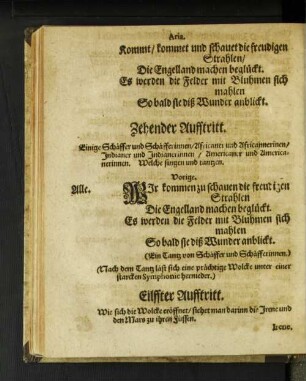 Aria.
Kommt/ kommet und schauet die freudigen
Strahlen/
Die Engelland machen beglückt.
Es werden die Felder mit Bluhmen sich
mahlen
So bald sie diß Wunder anblickt.
Zehender Aufftritt.
Einige Schäffer und Schäfferinnen/ Africaner und Africannerinnen/
Indianer und Indianerinnen/ Americaner und America-
nerinnen. Welche singen und tantzen.
Vorige.
Alle. WIr kommen zu schauen die freudigen
Strahlen
Die Engelland machen beglückt.
Es werden die Felder mit Bluhmen sich
mahlen
So bald sie diß Wunder anblickt.
(Ein Tantz von Schäffer und Schäfferinnen.)
(Nach dem Tantz läst sich eine prächtige Wolcke unter einer
starcken Symphonie hernieder.)
Eilffter Aufftritt.
Wie sich die Wolcke eröffnet/ siehet man darinn die Irene und
den Mars zu ihren Füssen.
Irene.